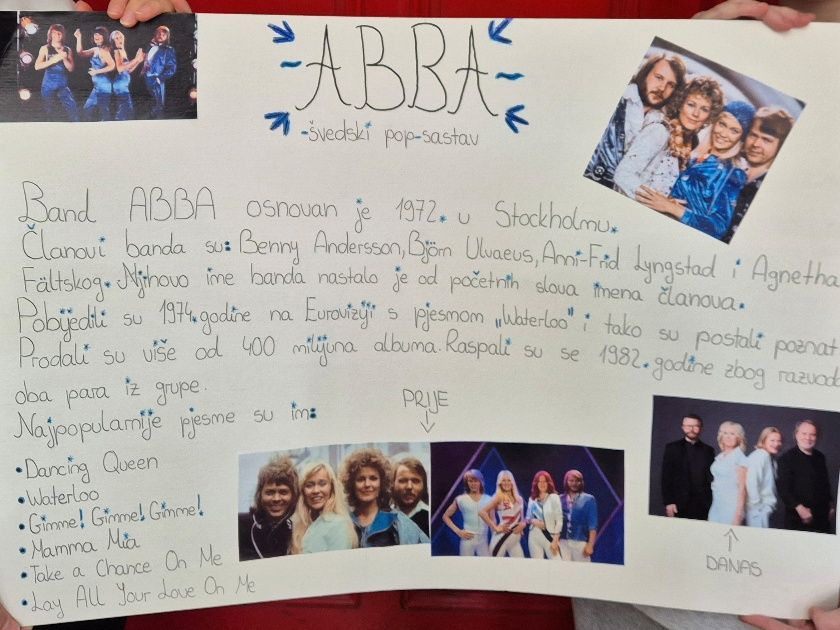 ABBA
-švedski pop-sastav
Band ABBA osnovan je 1972. u Stockholmu.
Članovi banda su: Benny Andersson, Björn Ulvaeus, Anni-Frid Lyngstad i Agnetha
Fältskog. Njihovo ime banda nastalo je od početnih slova imena članova.
Pobijedili su 1974. godine na Euroviziji s pjesmom „Waterloo" i tako su postali poznat
Prodali su više od 400 milijuna albuma. Raspali su se 1982. godine zbog razvod
oba para iz grupe.
Najpopularnije pjesme su im:
•Dancing Queen
•Waterloo
•Gimme! Gimme! Gimme!
•Mamma Mia
•Take a Chance On Me
•Lay All Your Love On Me
PRIJE
DANAS